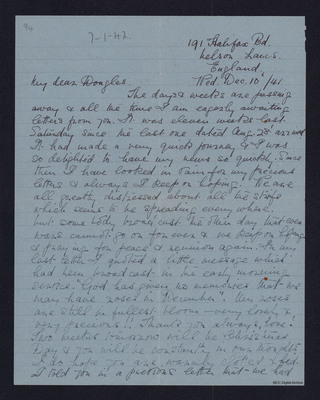 94
7-1-42
191 Halifax Rd.
Nelson Lancs.
England.
Wed. Dec. 10th/41
My dear Douglas,
The days & weeks are passing
away & all the time I am eagerly awaiting
letters from you. It was eleven weeks last
Saturday since the last one dated Aug. 28th arrived
It had made a very quick journey & I was
so delighted to have my news so quickly. Since
then I have looked in vain for my precious
letters & always I keep on hoping. We are
all greatly distressed about all the strife
which seems to be spreading everywhere
but some body broadcast the other day that even
wars cannot go on for ever & we keep on hoping
& praying for peace & reunion again. In my
last letter I quoted a little message which
had been broadcast in the early morning
service. "God has given us memories that we
may have roses in December". Our roses
are still in fullest bloom – very lovely &
very precious!! Thanks to you always, love!
Two weeks tomorrow will be Christmas
Day & you will be constantly in our thoughts
I do hope you are warmly clothed & fed.
I told you in a previous letter that we had